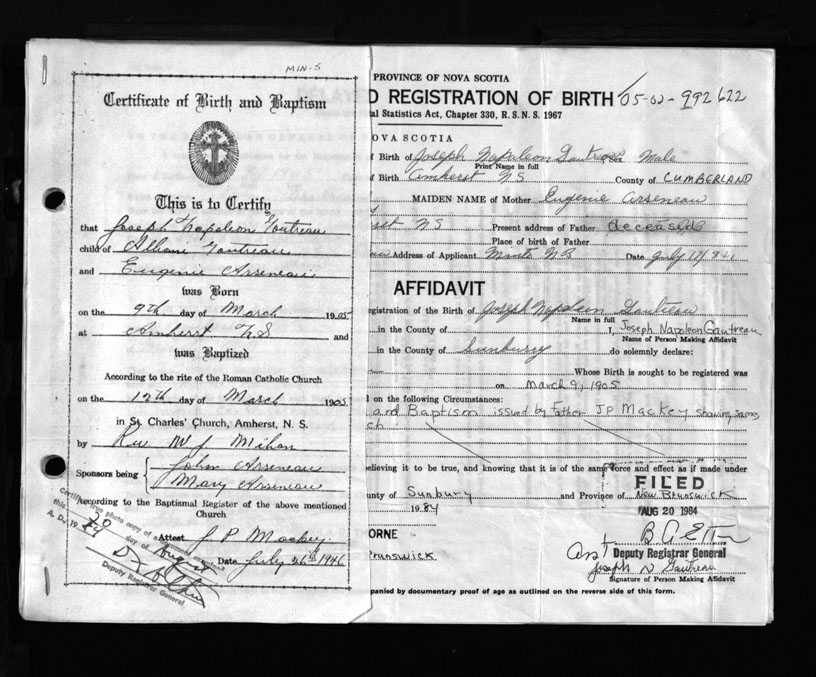 MIN-S
Certificate of Birth and Baptism
This is to Certify
that Joseph Napoleon Goutreau
child of Albani Goutreau
and Eugenie Arseneau
was Born
on the 9th day of March 1905
at Amherst N.S and
was Baptized
According to the rite of the Roman Catholic Church
on the 12th day of March 1905
in St. Charles' Church, Amherst, N. S.
by Rev W J Mihan
Sponsors being John Arseneau
Mary Arseneau
According to the Baptismal Register of the above mentioned
Church
Attest J P Mackey
Date July 26th 1946
Certified true photo copy of a
this 20 day of August
A. D. 19 84
Deputy Registrar General
PROVINCE OF NOVA SCOTIA
D REGISTRATION OF BIRTH 05-02-992622
al Statistics Act, Chapter 330, R. S. N. S. 1967
NOVA SCOTIA
f Birth of Joseph Napoleon Gautreau Sex Male
Print Name in full
f Birth Amherst NS County of CUMBERLAND
MAIDEN NAME of Mother Eugenie Arseneau
NS Present address of Father deceased
Place of birth of Father
Address of Applicant Minto N.B Date July 17/84
AFFIDAVIT
egistration of the Birth of Joseph Napoleon Gautreau
Name in full
in the County of I, Joseph Napoleon Gautreau
Name of Person Making Affidavit
in the County of Sunbury do solemnly declare:
Whose Birth is sought to be registered was
on March 9, 1905
d on the following Circumstances:
and Baptism issued by Father JP Mackey showing same
ch
elieving it to be true, and knowing that it is of the same force and effect as if made under
FILED
unty of Sunbury and Province of New Brunswick
1984
AUG 20 1984
ORNE
Brunswick
Asst Deputy Registrar General
Joseph N Gautreau
Signature of Person Making Affidavit
panied by documentary proof of age as outlined on the reverse side of this form.